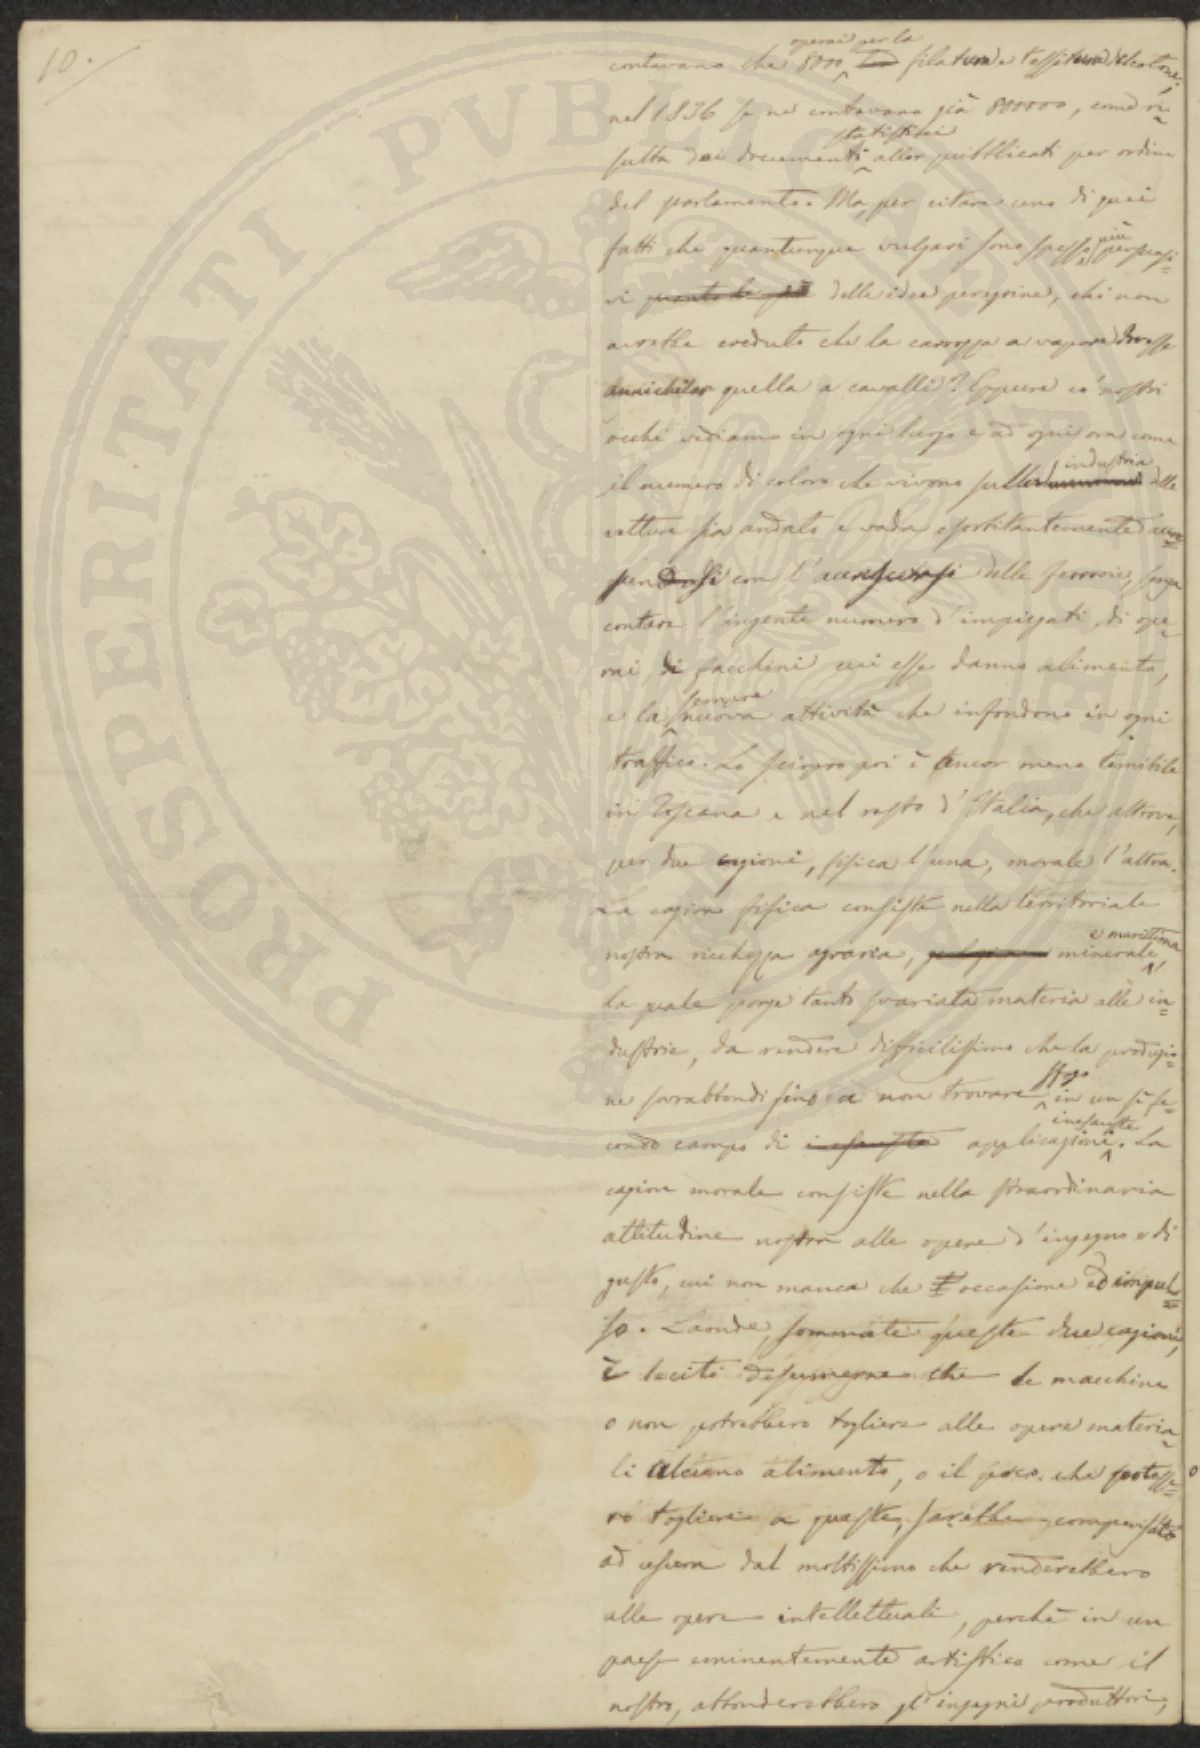 10.
contavano che 8000 operai per la filatura e tessitura del cotone,
nel 1836 se ne contavano già 800000, come ri=
sulta dai documenti statistici allor pubblicati per ordine
del parlamento. Ma, per citare uno di quei
fatti che quantunque vulgari sono spesso più persuasi=
vi delle idee peregrine, chi non
avrebbe creduto che la carrozza a vapore dovesse
annichilar quella a cavalli? Eppure co' nostri
occhi vediamo in ogni luogo e ad ogni ora come
il numero di coloro che vivono sull' industria delle
vetture sia andato e vada esorbitantemente accre=
scendosi con l'accrescersi delle ferrovie, senza
contare l'ingente numero d'impiegati, di ope=
rai, di facchini cui esse danno alimento,
e la sempre nuova attività che infondono in ogni
traffico. Lo sciopro poi è ancor meno temibile
in Toscana e nel resto d'Italia, che altrove,
per due cagioni, fisica l'una, morale l'altra.
La cagion fisica consiste nella territoriale
nostra ricchezza agraria, minerale e marittima,
la quale porge tanto svariata materia alle in=
dustrie, da rendere difficilissimo che la produzio=
ne sovrabbondi fino a non trovare sfogo in un sì fe=
condo campo di applicazioni inesauste. La
cagion morale consiste nella straordinaria
attitudine nostra alle opere d'ingegno e di
gusto, cui non manca che occasione ed impul=
so. Laonde, sommate queste due cagioni,
è lecito desumerne che le macchine
o non potrebbero togliere alle opere materia=
li alcuno alimento, o il poco che potesse=
ro togliere a queste, sarebbe compensato
ad usura dal moltissimo che renderebbero
alle opere intellettuali, perchè in un
paese eminentemente artistico come il
nostro, abbonderebbero gl'ingegni produttori,